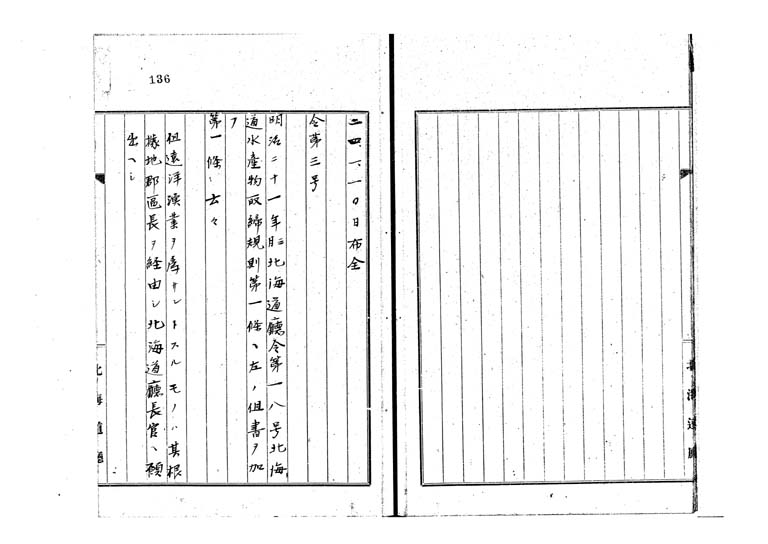 136
二四、一、一〇日布全
令第三号
明治二十一年月北海道廳令第一八号北海
道水産物取締規則第一條ヘ左ノ但書ヲ加
フ
第一條、云々
但遠洋漁業ヲ為サントスルモノハ其根
據地郡區長ヲ経由シ北海道廳長官ヘ願
出ヘシ
北海道廳
北海道廳